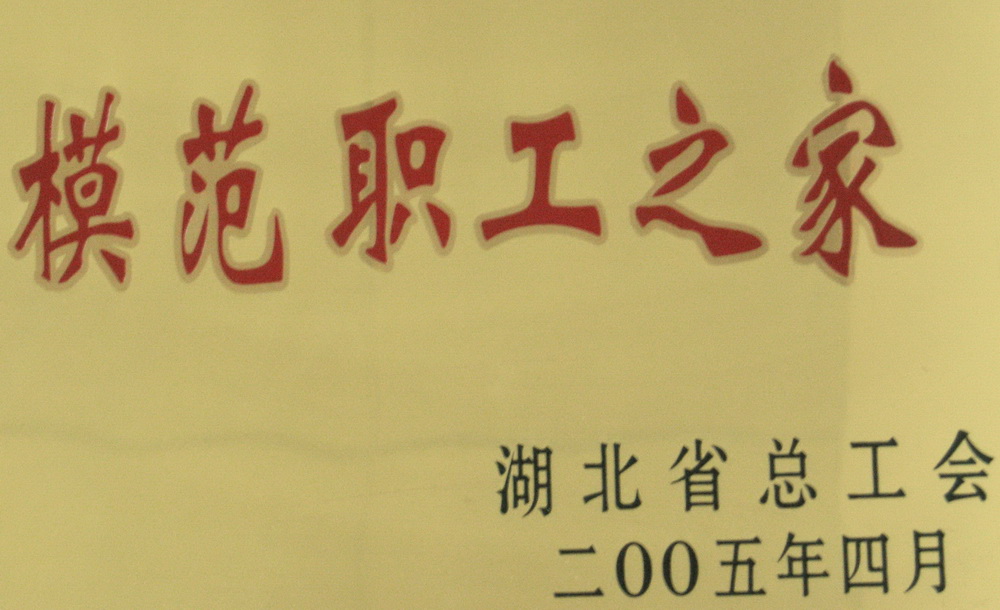 模范职工之家
湖北省总工会
二00五年四月